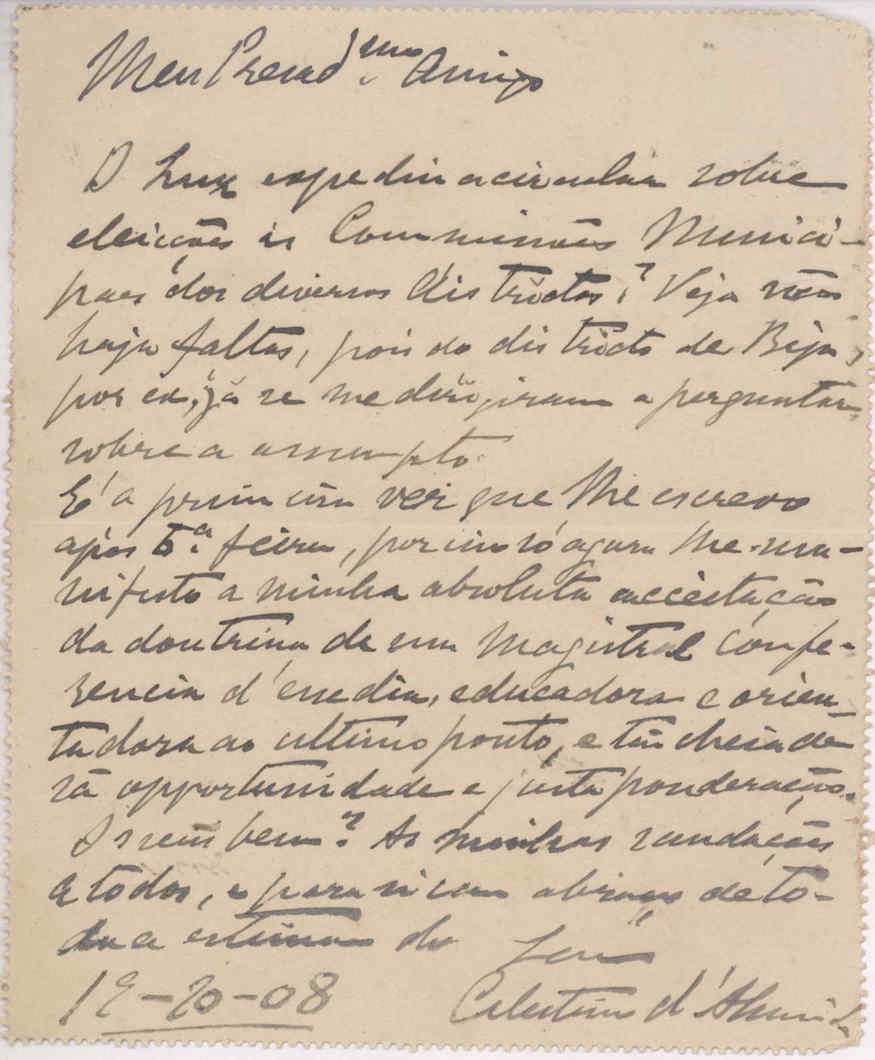 Meu Presad.mo Amigo
O Luz expediu a circular sobre
eleições ás Commissões Munici-
paes dos diversos districtos? Veja não
haja faltas, pois do districto de Beja,
por ex., já se me dirigiram a perguntar,
sobre o assumpto.
É a primeira vez que lhe escrevo
após 5.ª feira, por isso só agora lhe ma-
nifesto a minha absoluta acceitação
da doutrina da sua magistral confe-
rencia d'esse dia, educadora e orien-
tadora ao ultimo ponto, e tão cheia de
sã opportunidade e justa ponderação.
Os seus bem? As minhas saudações
a todos, e para si um abraço de to-
da a estima do Seu
19-10-08 Celestino d'Almeida